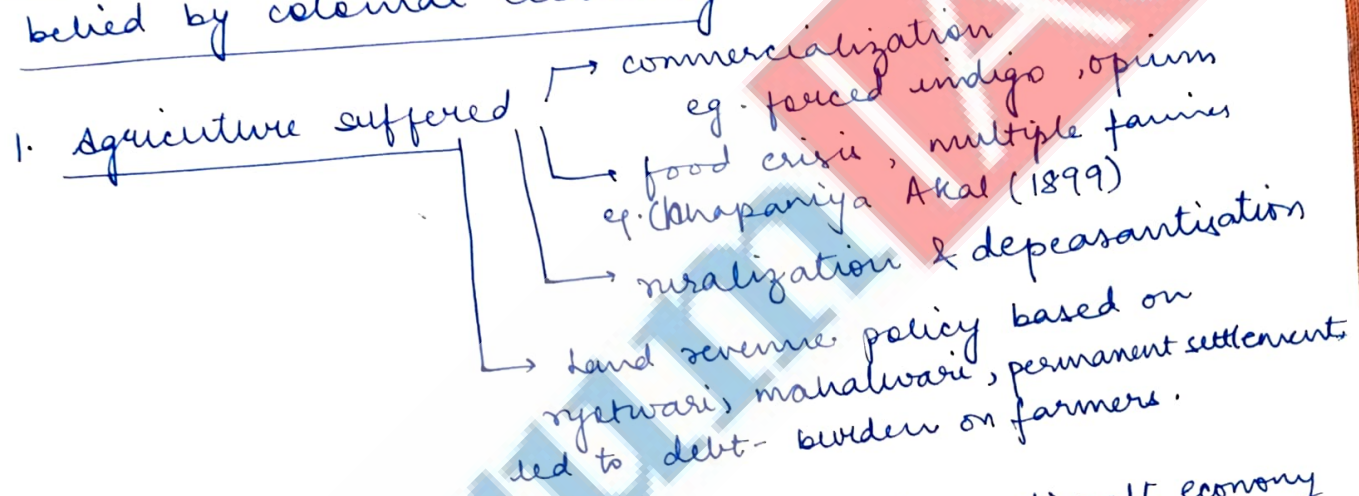 belied by colonial
1. Agriculture suffered → commercialization
eg. forced indigo, opium
→ food crisis, multiple famines
eg. Chhapaniya Akal (1899)
→ ruralization & depeasantisation
→ Land revenue policy based on
ryotwari, mahalwari, permanent settlement,
led to debt-burden on farmers.
economy